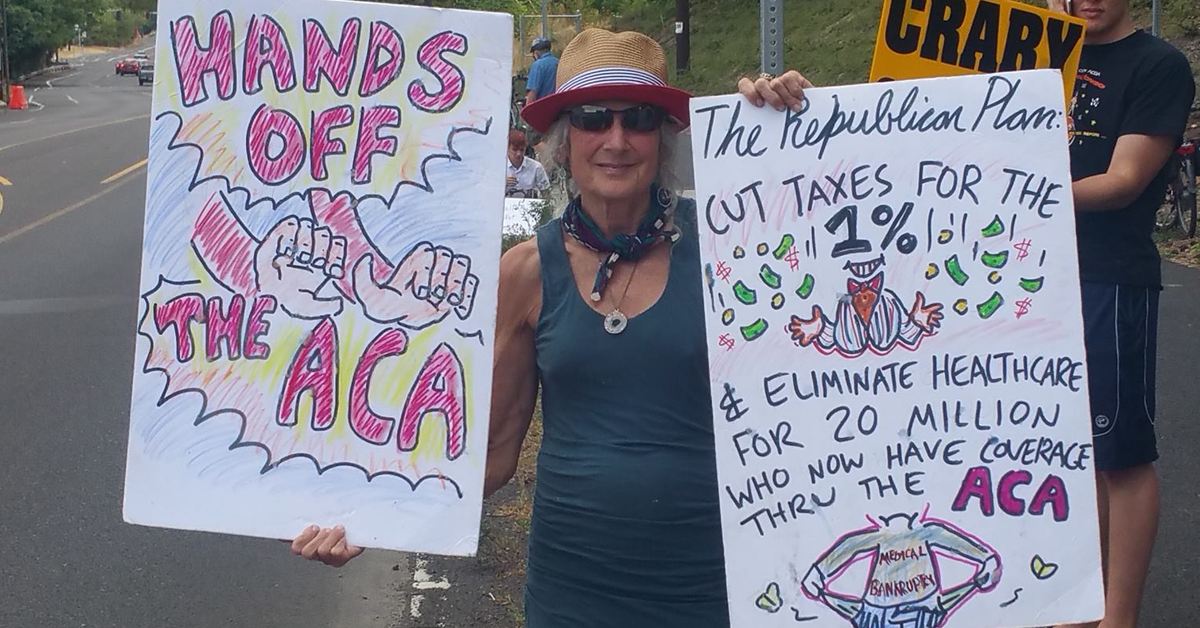 HANDS
OFF
THE
ACA
The Republican Plan:
CUT TAXES FOR THE
1%
& ELIMINATE HEALTHCARE
FOR 20 MILLION
WHO NOW HAVE COVERAGE
THRU THE ACA
MEDICAL
BANKRUPTCY
CRABY